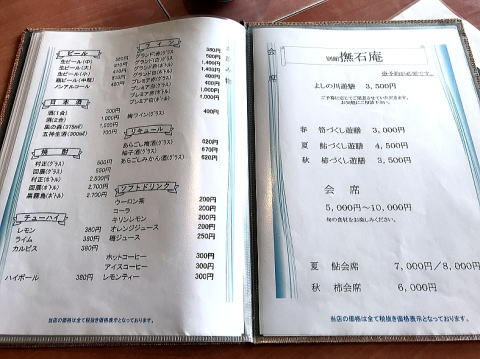 お飲み物
ビール
生ビール(中)
生ビール(大)
生ビール(小)
瓶ビール(中瓶)
ノンアルコール
日本酒
酒(1合) 300円
酒(2合)
風の森(375㎖)
五神生酒(300㎖) 700円
焼酎
村正(グラス) 500円
田颪(グラス)
村正(ボトル) 2,500円
田颪(ボトル) 2,700円
黒霧島(ボトル) 2,700円
チューハイ
レモン 380円
ライム 380円
カルピス 380円
ハイボール 380円
ワイン
グランド赤(グラス) 380円
グランド白(グラス)
グランド赤(ボトル) 1,400円
グランド白(ボトル) 1,400円
梅ワイン(グラス) 400円
リキュール
あらごし梅酒(グラス) 670円
柚子酒(グラス) 620円
あらごしみかん酒(グラス) 620円
ソフトドリンク
ウーロン茶 200円
コーラ 200円
キリンレモン 200円
オレンジジュース 200円
梅ジュース 250円
ホットコーヒー 300円
アイスコーヒー 300円
レモンティー 300円
当店の価格は全て税抜き価格表示となっております。
会席
別館 撫石庵
御予約が必要です。
よしの川遊膳 3,500円
春 筍づくし遊膳 3,000円
夏 鮎づくし遊膳 4,500円
秋 柿づくし遊膳 3,500円
会席
5,000円～10,000円
旬の食材をお楽しみください。
夏 鮎会席 7,000円／8,000円
秋 柿会席 6,000円
当店の価格は全て税抜き価格表示となっております。